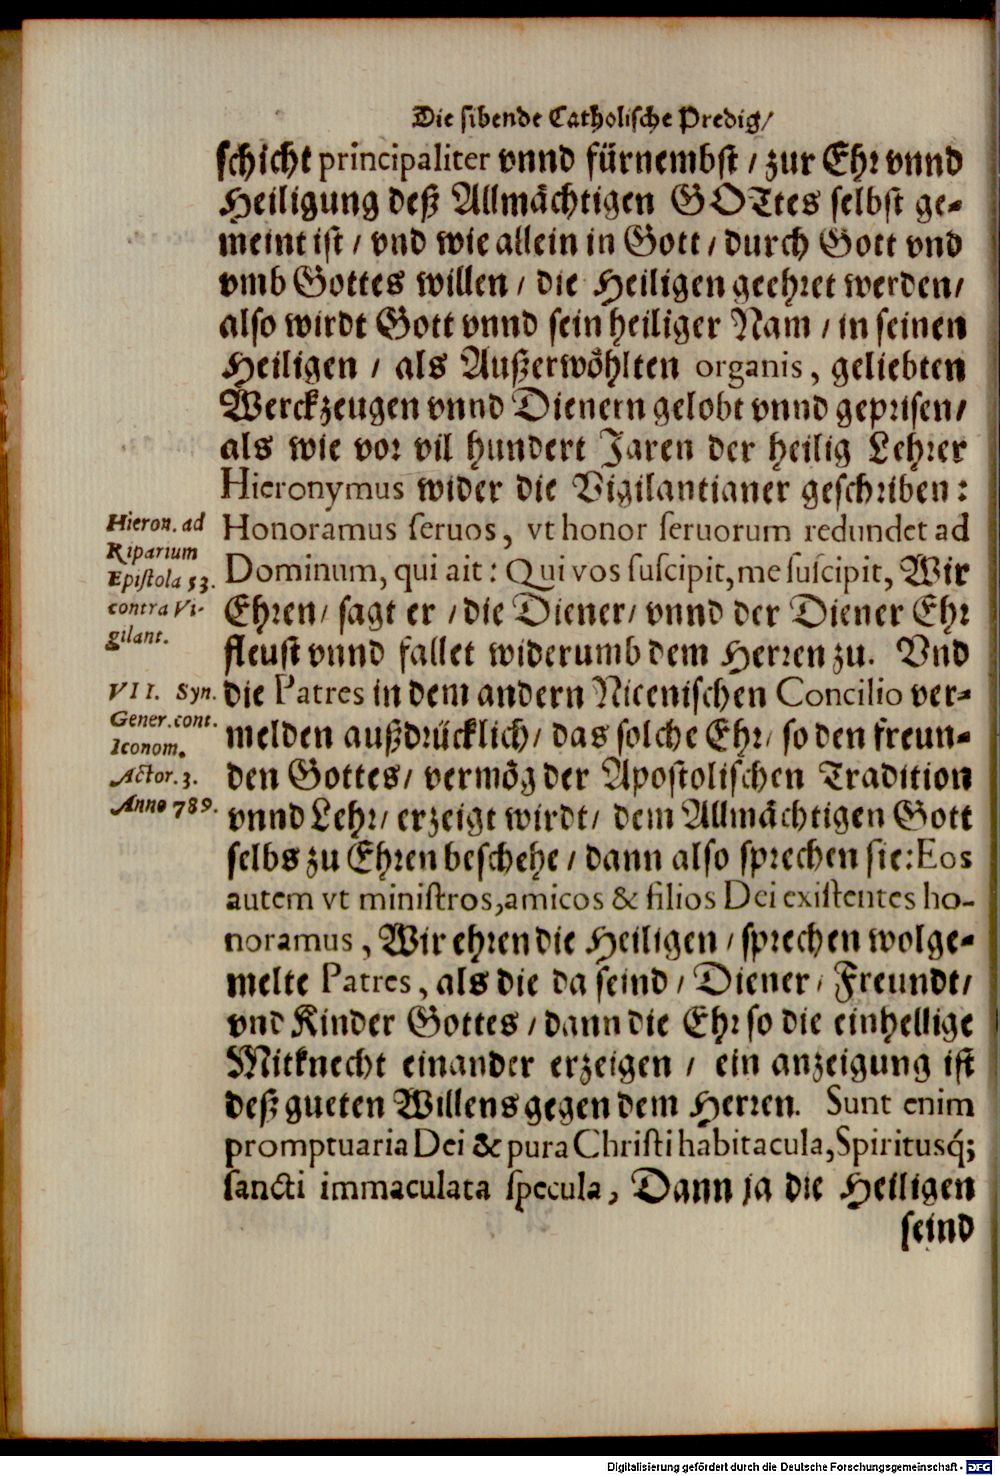 Die sibende Catholische Predig/
schicht principaliter vnnd fürnembst / zur Ehr vnnd
Heiligung deß Allmächtigen GOTtes selbst ge-
meint ist / vnd wie allein in Gott / durch Gott vnd
vmb Gottes willen / die Heiligen geehret werden/
also wirdt Gott vnnd sein heiliger Nam / in seinen
Heiligen / als Außerwöhlten organis, geliebten
Werckzeugen vnnd Dienern gelobt vnnd geprisen/
als wie vor vil hundert Jaren der heilig Lehrer
Hieronymus wider die Vigilantianer geschriben:
Honoramus seruos, vt honor seruorum redundet ad
Dominum, qui ait: Qui vos suscipit, me suscipit, Wir
Ehren/ sagt er / die Diener/ vnnd der Diener Ehr
fleust vnnd fallet widerumb dem Herren zu. Vnd
die Patres in dem andern Nicenischen Concilio ver-
melden außdrücklich/ das solche Ehr/ so den freun-
den Gottes/ vermög der Apostolischen Tradition
vnnd Lehr/ erzeigt wirdt/ dem Allmächtigen Gott
selbs zu Ehren beschehe / dann also sprechen sie: Eos
autem vt ministros, amicos & filios Dei existentes ho-
noramus, Wir ehren die Heiligen / sprechen wolge-
melte Patres, als die da seind / Diener / Freundt/
vnd Kinder Gottes / dann die Ehr so die einhellige
Mitknecht einander erzeigen / ein anzeigung ist
deß gueten Willens gegen dem Herren. Sunt enim
promptuaria Dei & pura Christi habitacula, Spiritusq́;
sancti immaculata specula, Dann ja die Heiligen
seind
Hieron. ad
Riparium
Epistola 53.
contra Vi-
gilant.
VII. Syn.
Gener. cont.
Iconom.
Actor. 3.
Anno 789.
Digitalisierung gefördert durch die Deutsche Forschungsgemeinschaft - DFG